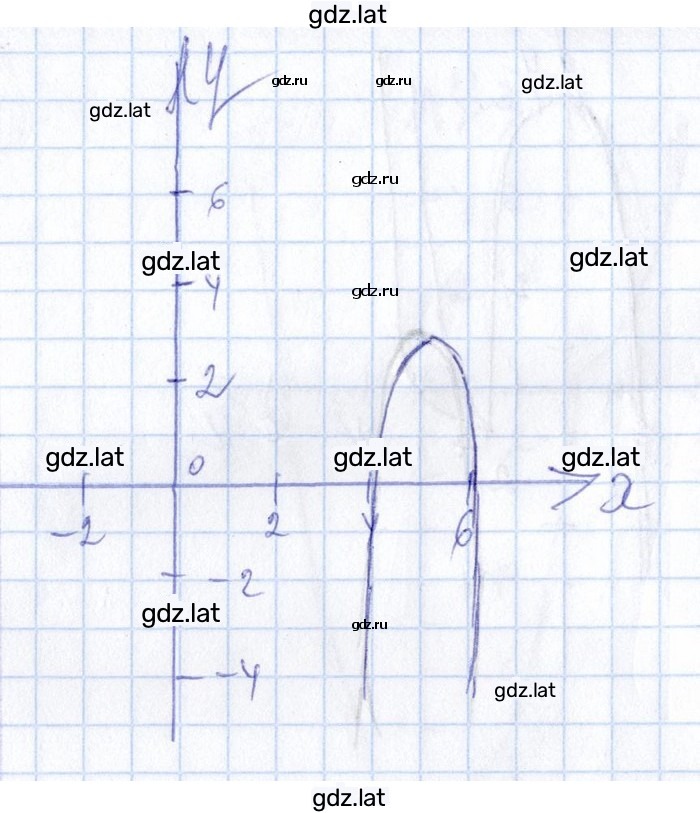 gdz.lat
y
gdz.ru gdz.ru gdz.lat
gdz.lat
gdz.ru
6
gdz.lat gdz.lat
4 gdz.ru
2
gdz.lat 0 gdz.lat gdz.lat
x
-2 2 4 6
-2
gdz.lat gdz.ru
-4 gdz.lat
gdz.lat